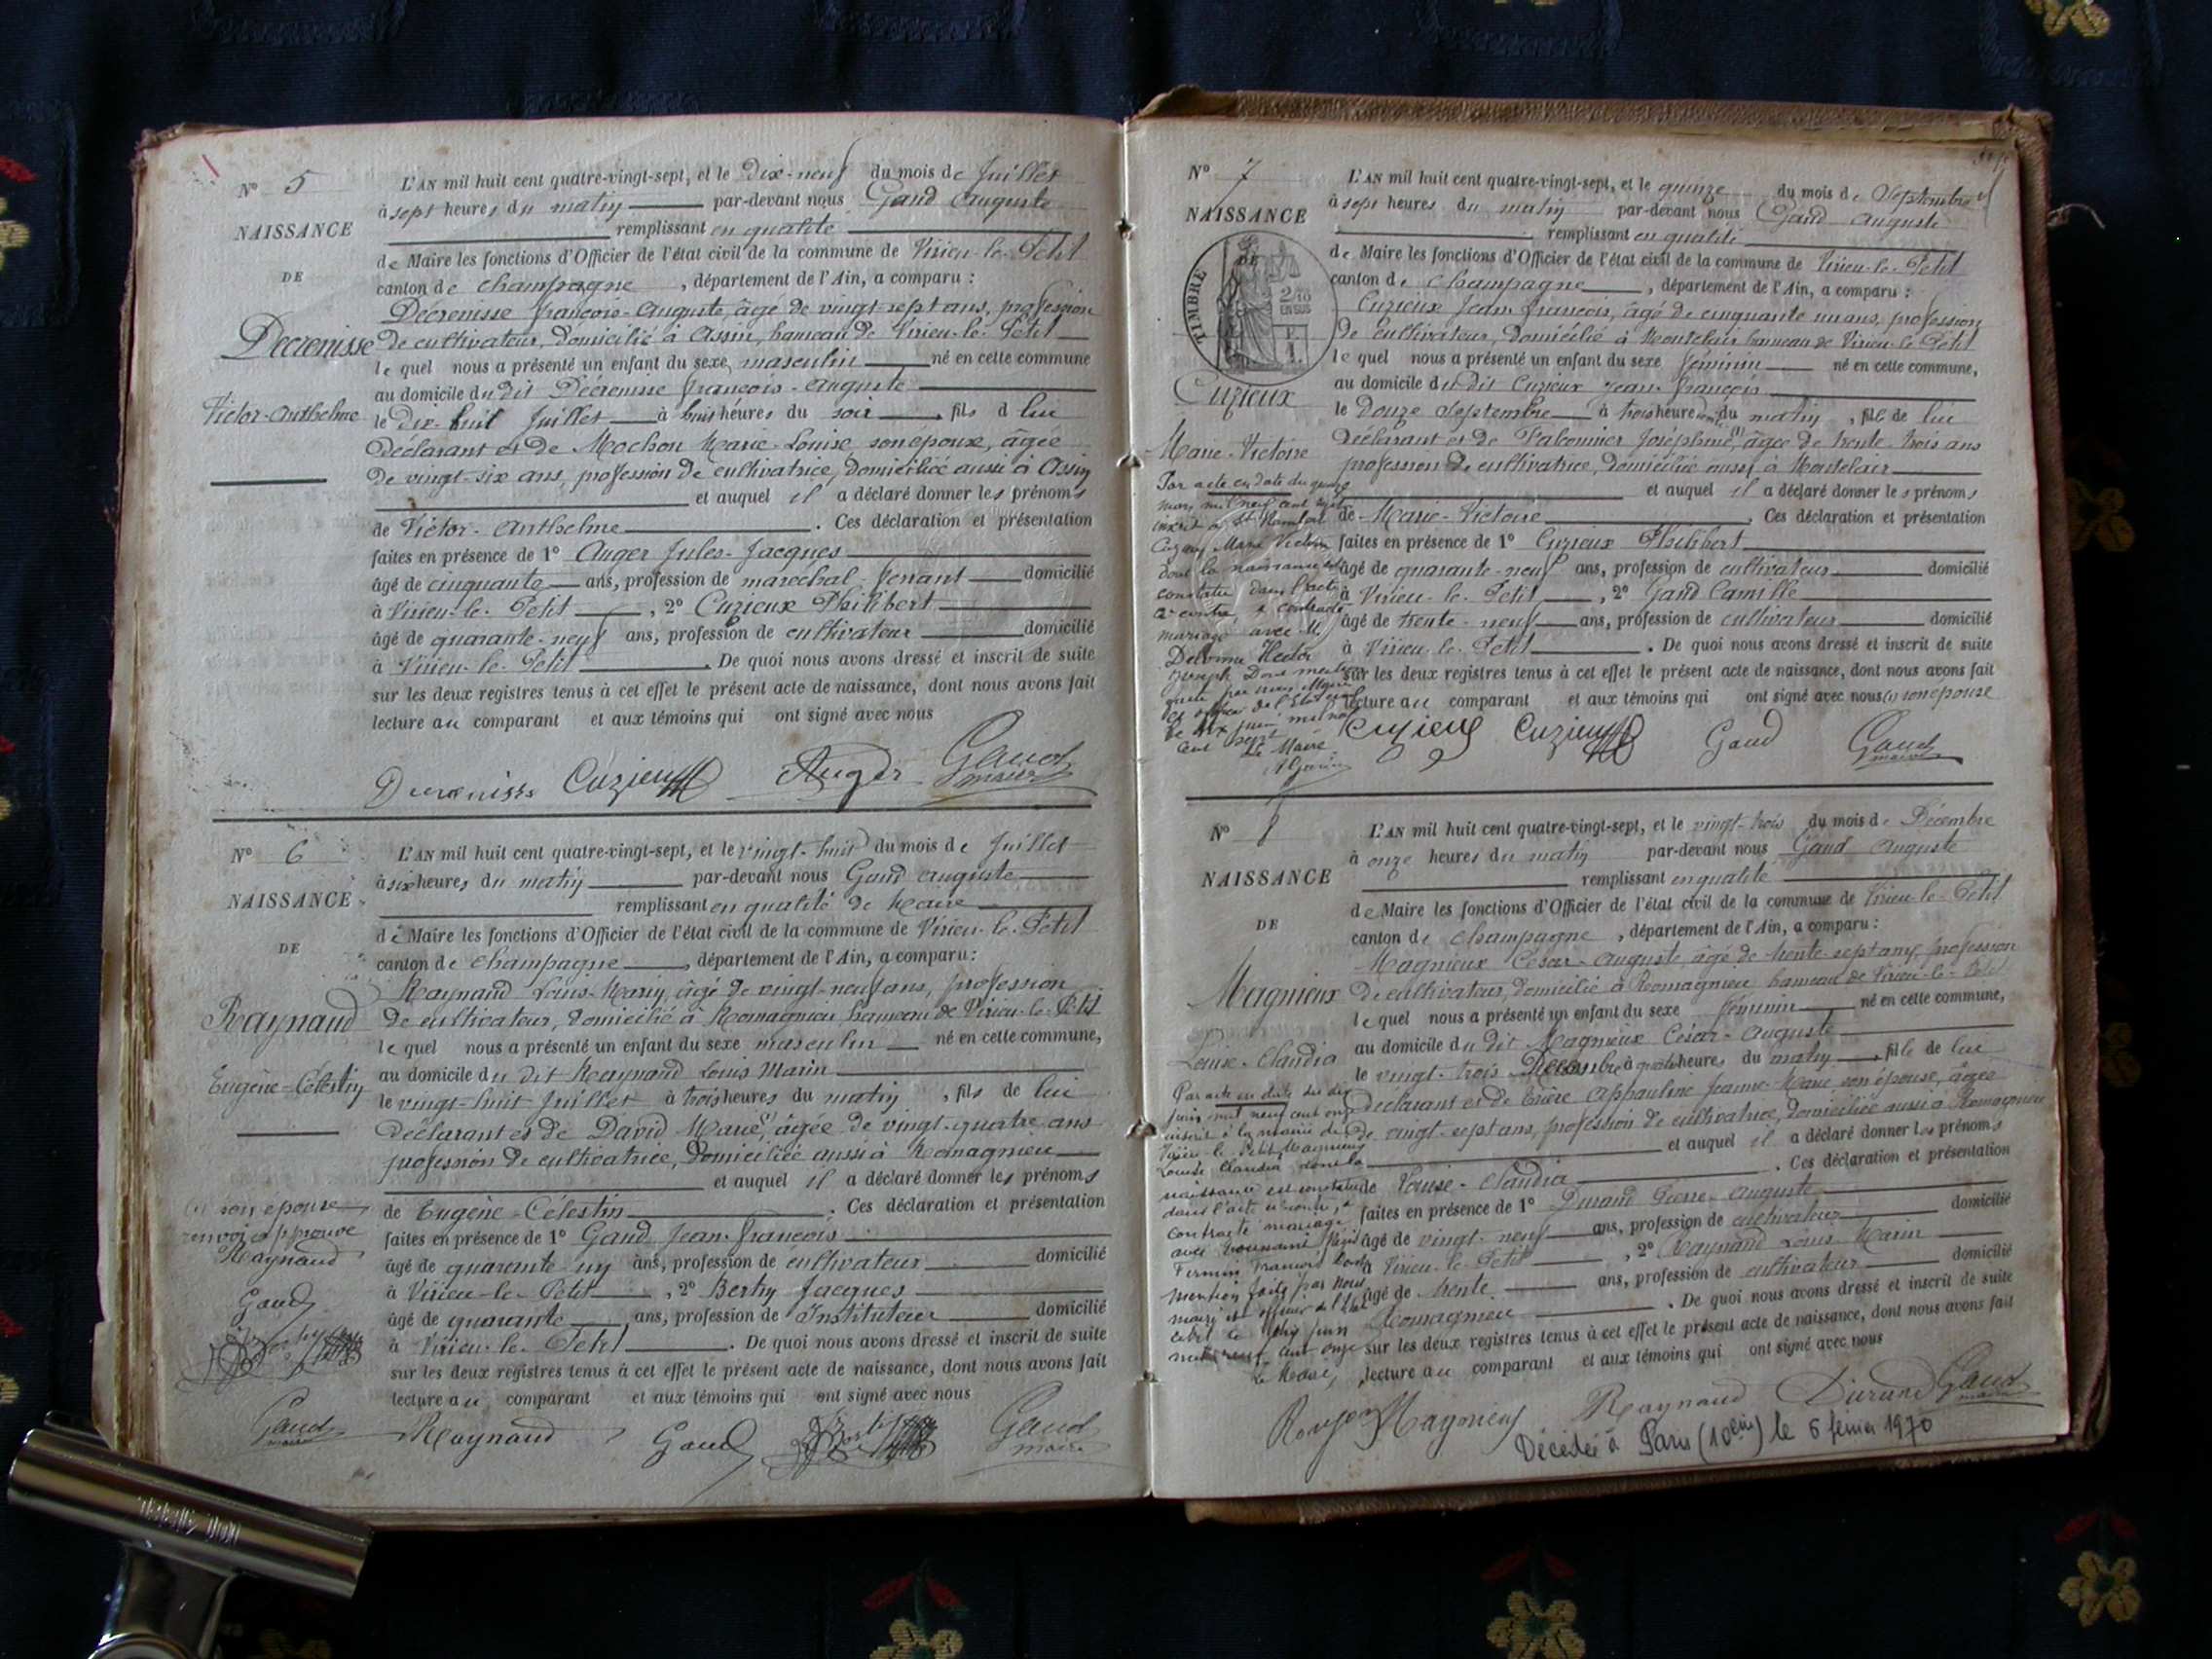 N° 5
NAISSANCE
DE
Decrenisse
Victor-Anthelme
L'AN mil huit cent quatre-vingt-sept, et le dix-neuf du mois de Juillet
à sept heures du matin par-devant nous Gaud Auguste
remplissant en qualité
de Maire les fonctions d'Officier de l'état civil de la commune de Virieu-le-Petit
canton de Champagne, département de l'Ain, a comparu :
Décrenisse françois-Auguste, âgé de vingt-sept ans, profession
de cultivateur, domicilié à Assin, hameau de Virieu-le-Petit
lequel nous a présenté un enfant du sexe masculin né en cette commune
au domicile du dit Décrenisse françois-Auguste
le dix-huit Juillet à huit heures du soir, fils d lui
déclarant et de Mochon Marie-Louise, son epoux, âgée
de vingt-six ans, profession de cultivatrice, domiciliée aussi à Assin
et auquel il a déclaré donner les prénoms
de Victor-Anthelme. Ces déclaration et présentation
faites en présence de 1° Auger Jules-Jacques
âgé de cinquante ans, profession de marechal ferrant domicilié
à Virieu-le-Petit, 2° Cuzieux Philibert
âgé de quarante-neuf ans, profession de cultivateur domicilié
à Virieu-le-Petit. De quoi nous avons dressé et inscrit de suite
sur les deux registres tenus à cet effet le présent acte de naissance, dont nous avons fait
lecture au comparant et aux témoins qui ont signé avec nous
Decrenisse Cuzieux Auger Gaud
maire
N° 6
NAISSANCE
DE
Raynaud
Eugène-Célestin
(1) son épouse
renvoi approuvé
Raynaud
Gaud
Gaud
maire
L'AN mil huit cent quatre-vingt-sept, et le vingt-huit du mois de Juillet
à six heures du matin par-devant nous Gaud Auguste
remplissant en qualité de Maire
de Maire les fonctions d'Officier de l'état civil de la commune de Virieu-le-Petit
canton de Champagne, département de l'Ain, a comparu :
Raynaud Louis-Marin, âgé de vingt-neuf ans, profession
de cultivateur, domicilié à Romagnieu hameau de Virieu-le-Petit
lequel nous a présenté un enfant du sexe masculin né en cette commune,
au domicile du dit Raynaud Louis Marin
le vingt-huit Juillet à trois heures du matin, fils de lui
déclarant et de David Marie (1), âgée de vingt-quatre ans
profession de cultivatrice, domiciliée aussi à Romagnieu
et auquel il a déclaré donner les prénoms
de Eugène-Célestin. Ces déclaration et présentation
faites en présence de 1° Gaud Jean-françois
âgé de quarante-un ans, profession de cultivateur domicilié
à Virieu-le-Petit, 2° Bertin Jacques
âgé de quarante ans, profession de Instituteur domicilié
à Virieu-le-Petit. De quoi nous avons dressé et inscrit de suite
sur les deux registres tenus à cet effet le présent acte de naissance, dont nous avons fait
lecture au comparant et aux témoins qui ont signé avec nous
Raynaud Gaud Gaud
maire
N° 7
NAISSANCE
DE
TIMBRE
2/10
EN SUS
Cuzieux
Marie-Victoire
Par acte en date du quinze
mars mil neuf cent sept
inscrit à St Rambert
Cuzieux Marie Victoire
dont la naissance est
constatée dans l'acte
ci-contre, a contracté
mariage avec M.
Delorme Hector
Joseph Dont mention
faite par nous Maire
et officier de l'Etat civil
le dix juin mil neuf
cent sept
Le Maire
L'AN mil huit cent quatre-vingt-sept, et le quinze du mois de Septembre
à sept heures du matin par-devant nous Gaud Auguste
remplissant en qualité
de Maire les fonctions d'Officier de l'état civil de la commune de Virieu-le-Petit
canton de Champagne, département de l'Ain, a comparu :
Cuzieux Jean-françois, âgé de cinquante un ans, profession
de cultivateur, domicilié à Montclair hameau de Virieu-le-Petit
lequel nous a présenté un enfant du sexe féminin né en cette commune,
au domicile du dit Cuzieux Jean-françois
le douze Septembre à trois heures du matin, fille de lui
déclarant et de Falconnier Joséphine (1), âgée de trente-trois ans
profession de cultivatrice, domiciliée aussi à Montclair
et auquel il a déclaré donner les prénoms
de Marie-Victoire. Ces déclaration et présentation
faites en présence de 1° Cuzieux Philibert
âgé de quarante-neuf ans, profession de cultivateur domicilié
à Virieu-le-Petit, 2° Gaud Camille
âgé de trente-neuf ans, profession de cultivateur domicilié
à Virieu-le-Petit. De quoi nous avons dressé et inscrit de suite
sur les deux registres tenus à cet effet le présent acte de naissance, dont nous avons fait
lecture au comparant et aux témoins qui ont signé avec nous (1) son epouse
Cuzieux Cuzieux Gaud Gaud
maire
N° 8
NAISSANCE
DE
Magnieux
Louise-Claudia
Par acte en date du dix
juin mil neuf cent onze
inscrit à la mairie de
Virieu-le-Petit Magnieux
Louise Claudia dont la
naissance est constatée
dans l'acte ci-contre, a
contracté mariage
avec
Firmin François
mention faite par nous
maire et officier de l'Etat
civil le dix juin
mil neuf cent onze
Le Maire,
L'AN mil huit cent quatre-vingt-sept, et le vingt-trois du mois de Décembre
à onze heures du matin par-devant nous Gaud Auguste
remplissant en qualité
de Maire les fonctions d'Officier de l'état civil de la commune de Virieu-le-Petit
canton de Champagne, département de l'Ain, a comparu :
Magnieux César-Auguste, âgé de trente-sept ans, profession
de cultivateur, domicilié à Romagnieu hameau de Virieu-le-Petit
lequel nous a présenté un enfant du sexe féminin né en cette commune,
au domicile du dit Magnieux César-Auguste
le vingt-trois Décembre à quatre heures du matin, fille de lui
déclarant et de Appauline Jeanne-Marie son épouse, âgée
de vingt-sept ans, profession de cultivatrice, domiciliée aussi à Romagnieu
et auquel il a déclaré donner les prénoms
de Louise-Claudia. Ces déclaration et présentation
faites en présence de 1° Durand Pierre-Auguste
âgé de vingt-neuf ans, profession de cultivateur domicilié
à Virieu-le-Petit, 2° Raynaud Louis Marin
âgé de trente ans, profession de cultivateur domicilié
à Romagnieu. De quoi nous avons dressé et inscrit de suite
sur les deux registres tenus à cet effet le présent acte de naissance, dont nous avons fait
lecture au comparant et aux témoins qui ont signé avec nous
Magnieux Raynaud Durand Gaud
maire
Décédée à Paris (10ème) le 6 février 1970